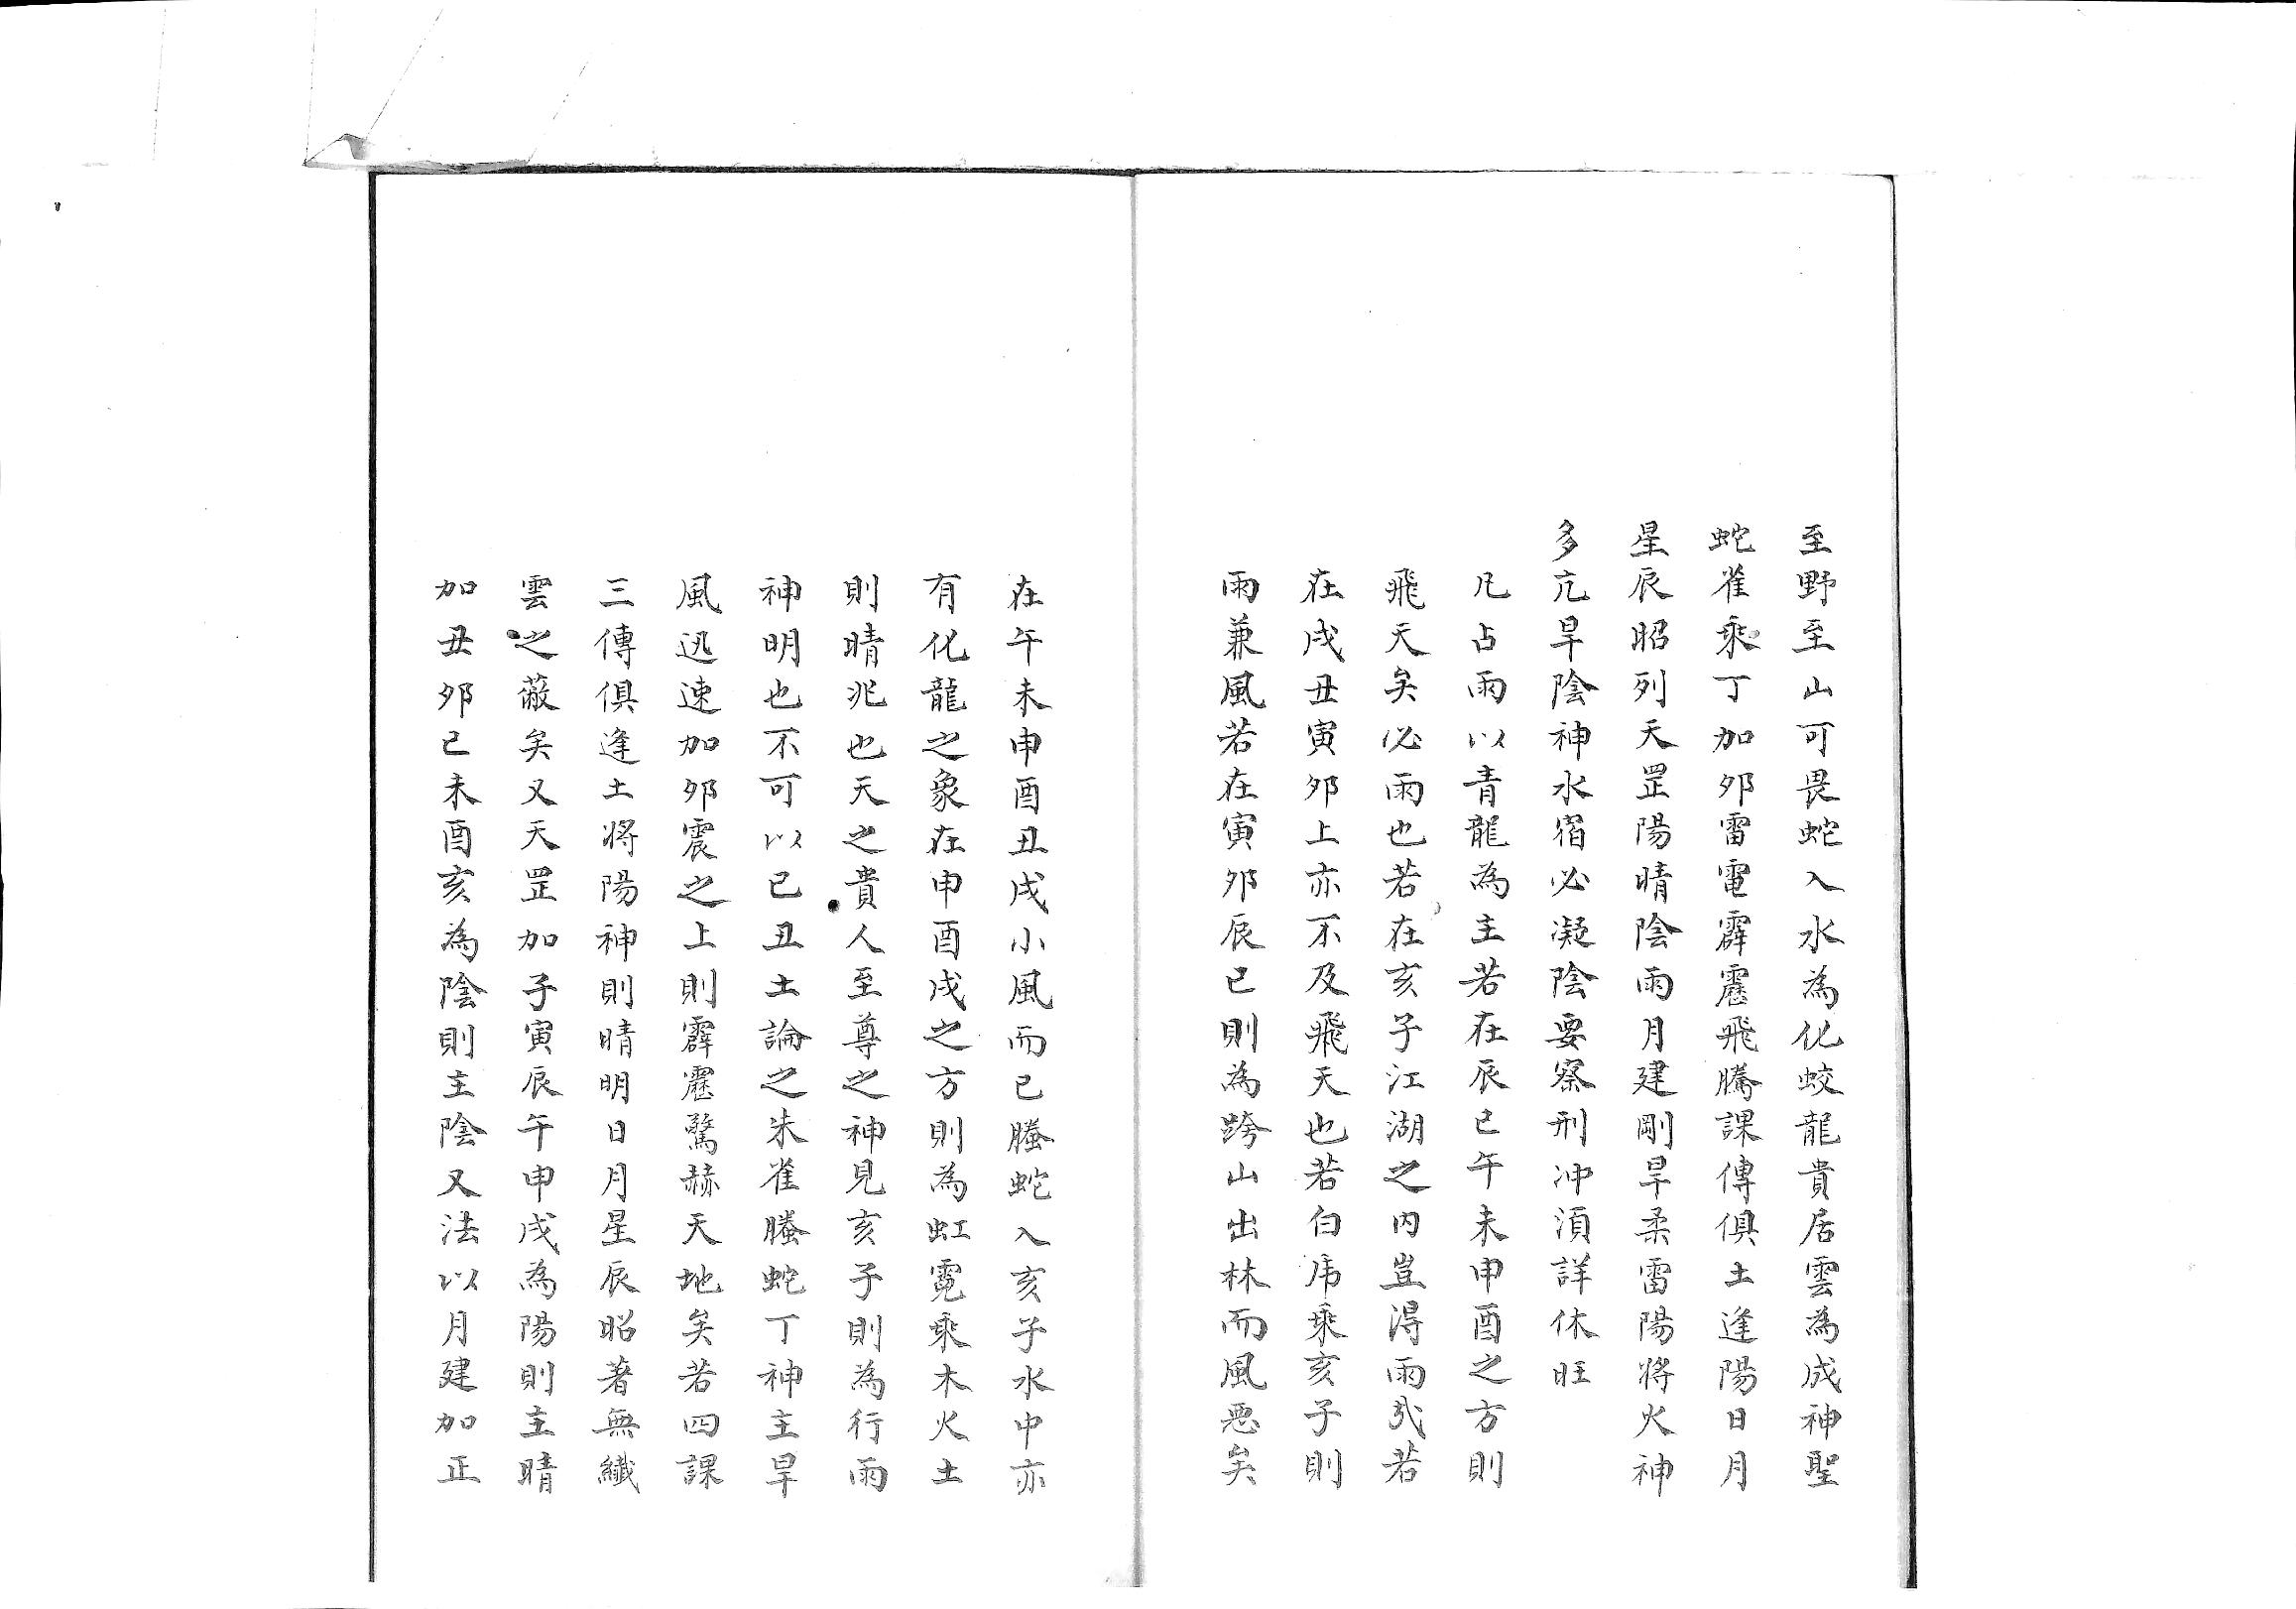 至野至山可畏蛇入水為化蛟龍貴居雲為成神聖
蛇雀乘丁加夘雷電霹靂飛騰課傳俱土逢陽日月
星辰昭列天罡陽晴陰雨月建剛旱柔雷陽將火神
多亢旱陰神水宿必凝陰要察刑冲湏詳休旺
凡占雨以青龍為主若在辰巳午未申酉之方則
飛天矣必雨也若在亥子江湖之内豈得雨哉若
在戌丑寅夘上亦不及飛天也若白虎乘亥子則
雨兼風若在寅夘辰巳則為跨山出林而風惡矣
在午未申酉丑戌小風而已螣蛇入亥子水中亦
有化龍之象在申酉戌之方則為虹霓乘木火土
則晴兆也天之貴人至尊之神見亥子則為行雨
神明也不可以已丑土論之朱雀螣蛇丁神主旱
風迅速加夘震之上則霹靂驚赫天地矣若四課
三傳俱逢土將陽神則晴明日月星辰昭著無纖
雲之蔽矣又天罡加子寅辰午申戌為陽則主晴
加丑夘巳未酉亥為陰則主陰又法以月建加正